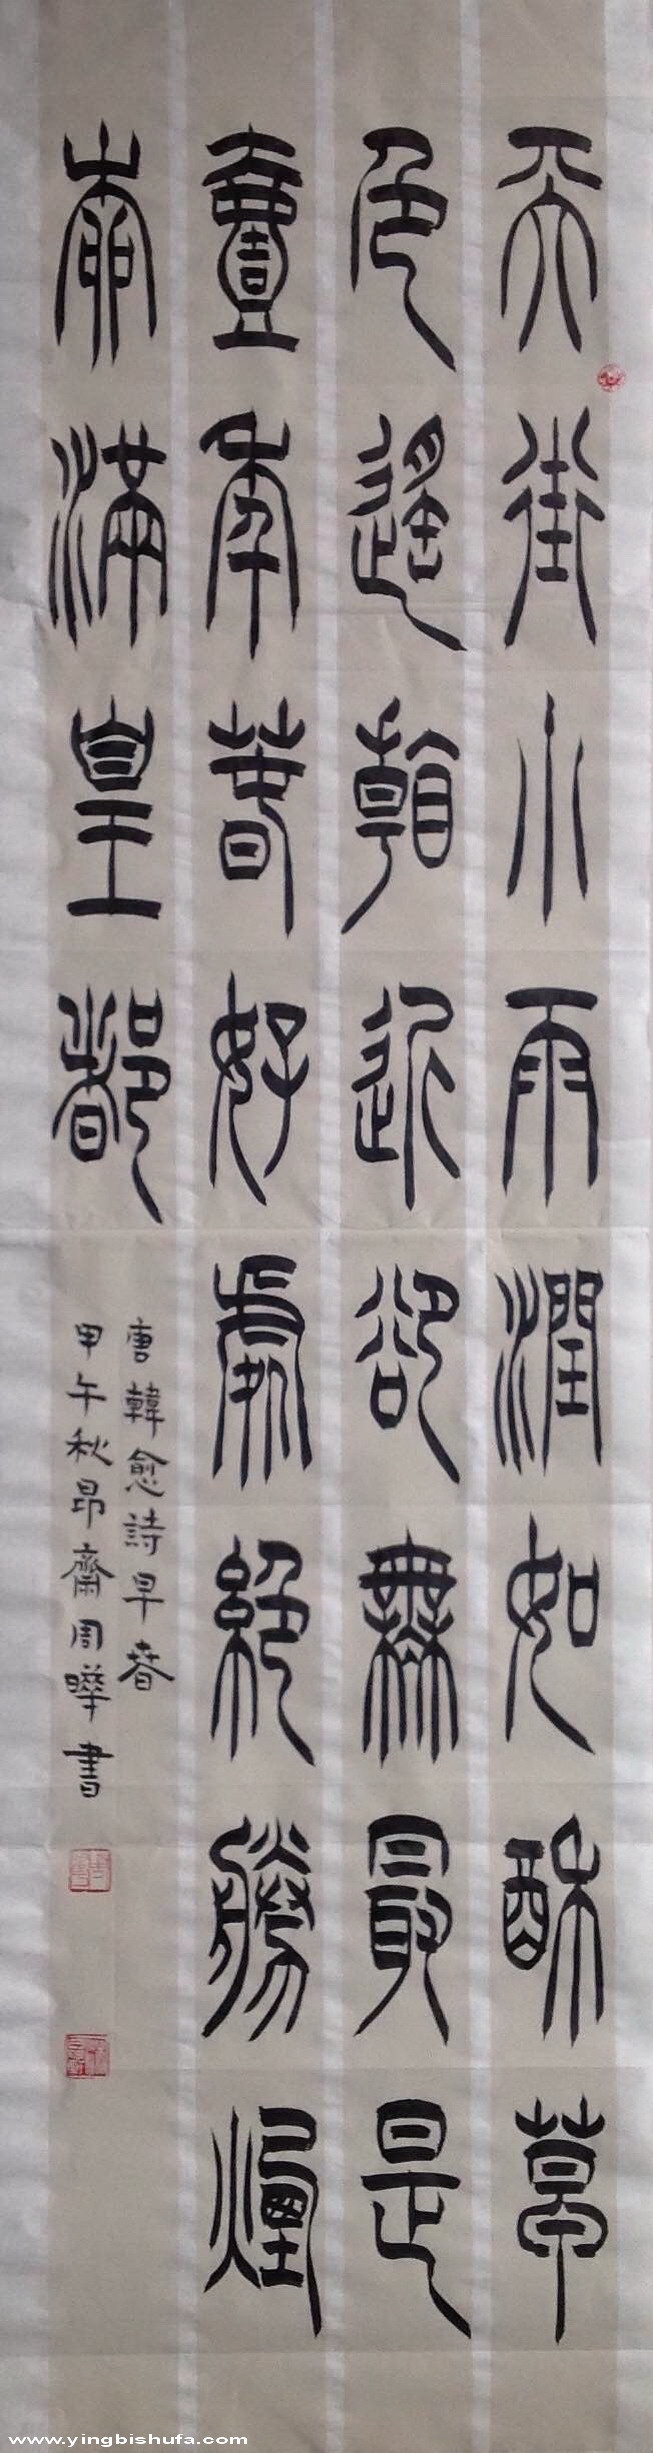 天街小雨潤如酥草
色遙看近卻無最是
壹年春好處絕勝煙
柳滿皇都
唐韓愈詩早春
甲午秋昂齋周曄書
www.yingbishufa.com